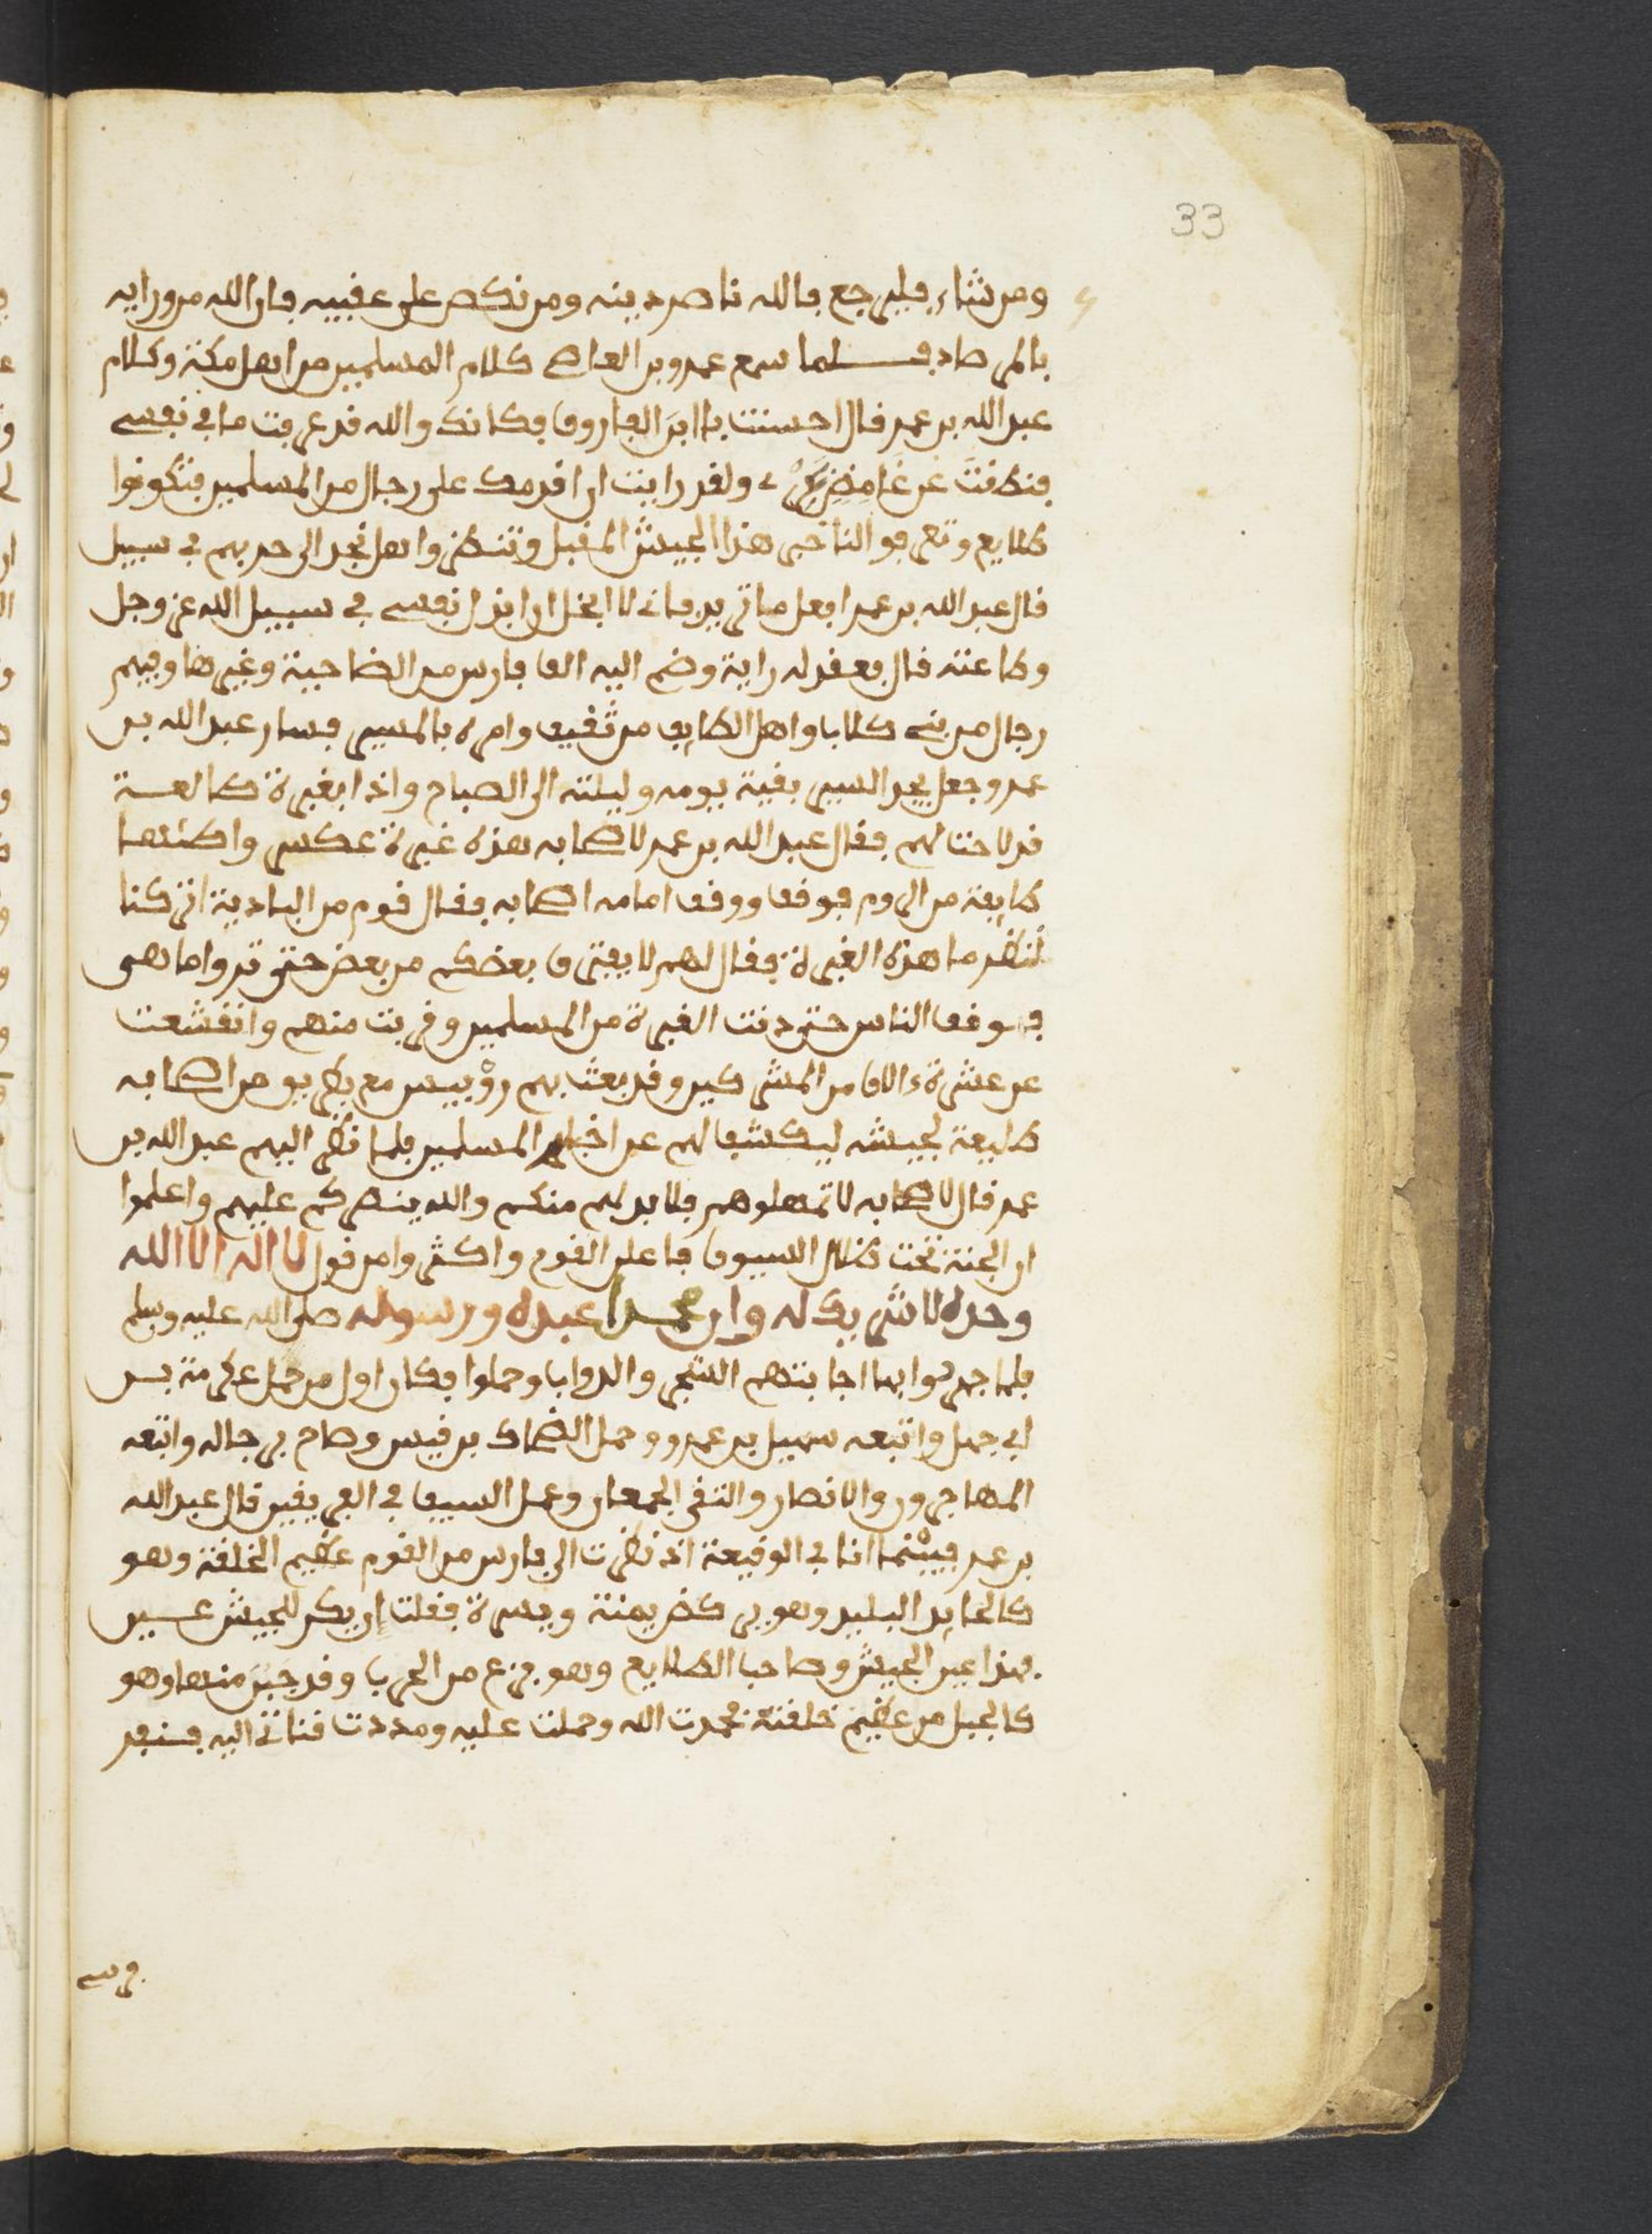 33
ومن شاء فليرجع فالله ناصر دينه ومن نكص على عقبيه فان الله من ورايه
بالمرصاد فلما سمع عمرو بن العاصي كلام المسلمين من اهل مكة وكلام
عبد الله بن عمر قال احسنت يا ابن الفاروق فكانك والله قد عرفت ما في نفسي
فنطقت عن غامض سري ولقد رايت ان اقدمك على رجال من المسلمين فتكونوا
طلايع وتعرفوا لنا خبر هذا الجيش المقبل وتنظروا هل نجد الى حربهم في سبيل
قال عبد الله بن عمر افعل ما تريد فاني لا ابخل ان ابذل نفسي في سبيل الله عز وجل
وطاعته قال فعقد له راية وضم اليه الف فارس من الضاحية وغيرها وفيهم
رجال من بني كلاب واهل الطايف من ثقيف وامره بالمسير فسار عبد الله بن
عمر وجعل يجد السير بقية يومه وليلته الى الصباح واذا بغبرة طالعة
قد لاحت لهم فقال عبد الله بن عمر لاصحابه هذه غبرة عسكر واظنها
طايفة من الروم فوقف ووقف امامه اصحابه فقال قوم من البادية اتركنا
ننظر ما هذه الغبرة فقال لهم لا يفترق بعضكم من بعض حتى تروا ما هي
فوقف الناس حتى دنت الغبرة من المسلمين وقربت منهم وانقشعت
عن عشرة ءالاف من المشركين وقد بعث بهم روبيس مع بطريق من اصحابه
طليعة لجيشه ليكشف لهم عن اخبار المسلمين فلما نظر اليهم عبد الله بن
عمر قال لاصحابه لا تمهلوهم فلا بد لهم منكم والله ينصركم عليهم واعلموا
ان الجنة تحت ظلال السيوف فاعلن القوم واكثروا من قول لا اله الا الله
وحده لا شريك له وان محمدا عبده ورسوله صلى الله عليه وسلم
فلما جهروا بها اجابتهم الشجر والدواب وحملوا فكان اول من حمل عكرمة بن
ابي جهل واتبعه سهيل بن عمرو وحمل الضحاك بن قيس وصاح برجاله واتبعه
المهاجرون والانصار والتقى الجمعان وعمل السيف في الفريقين قال عبد الله
بن عمر فبينما انا في الوقيعة اذ نظرت الى فارس من القوم عظيم الخلقة وهو
كالحايد البليد وهو يركض يمنة ويسرة فقلت ان يكن للجيش عين
فهذا عين الجيش وصاحب الطلايع وهو جزع من الحرب وقد جبن منها وهو
كالجبل من عظيم خلقته فحمدت الله وحملت عليه ومددت قناتي اليه فنفر
فرسه